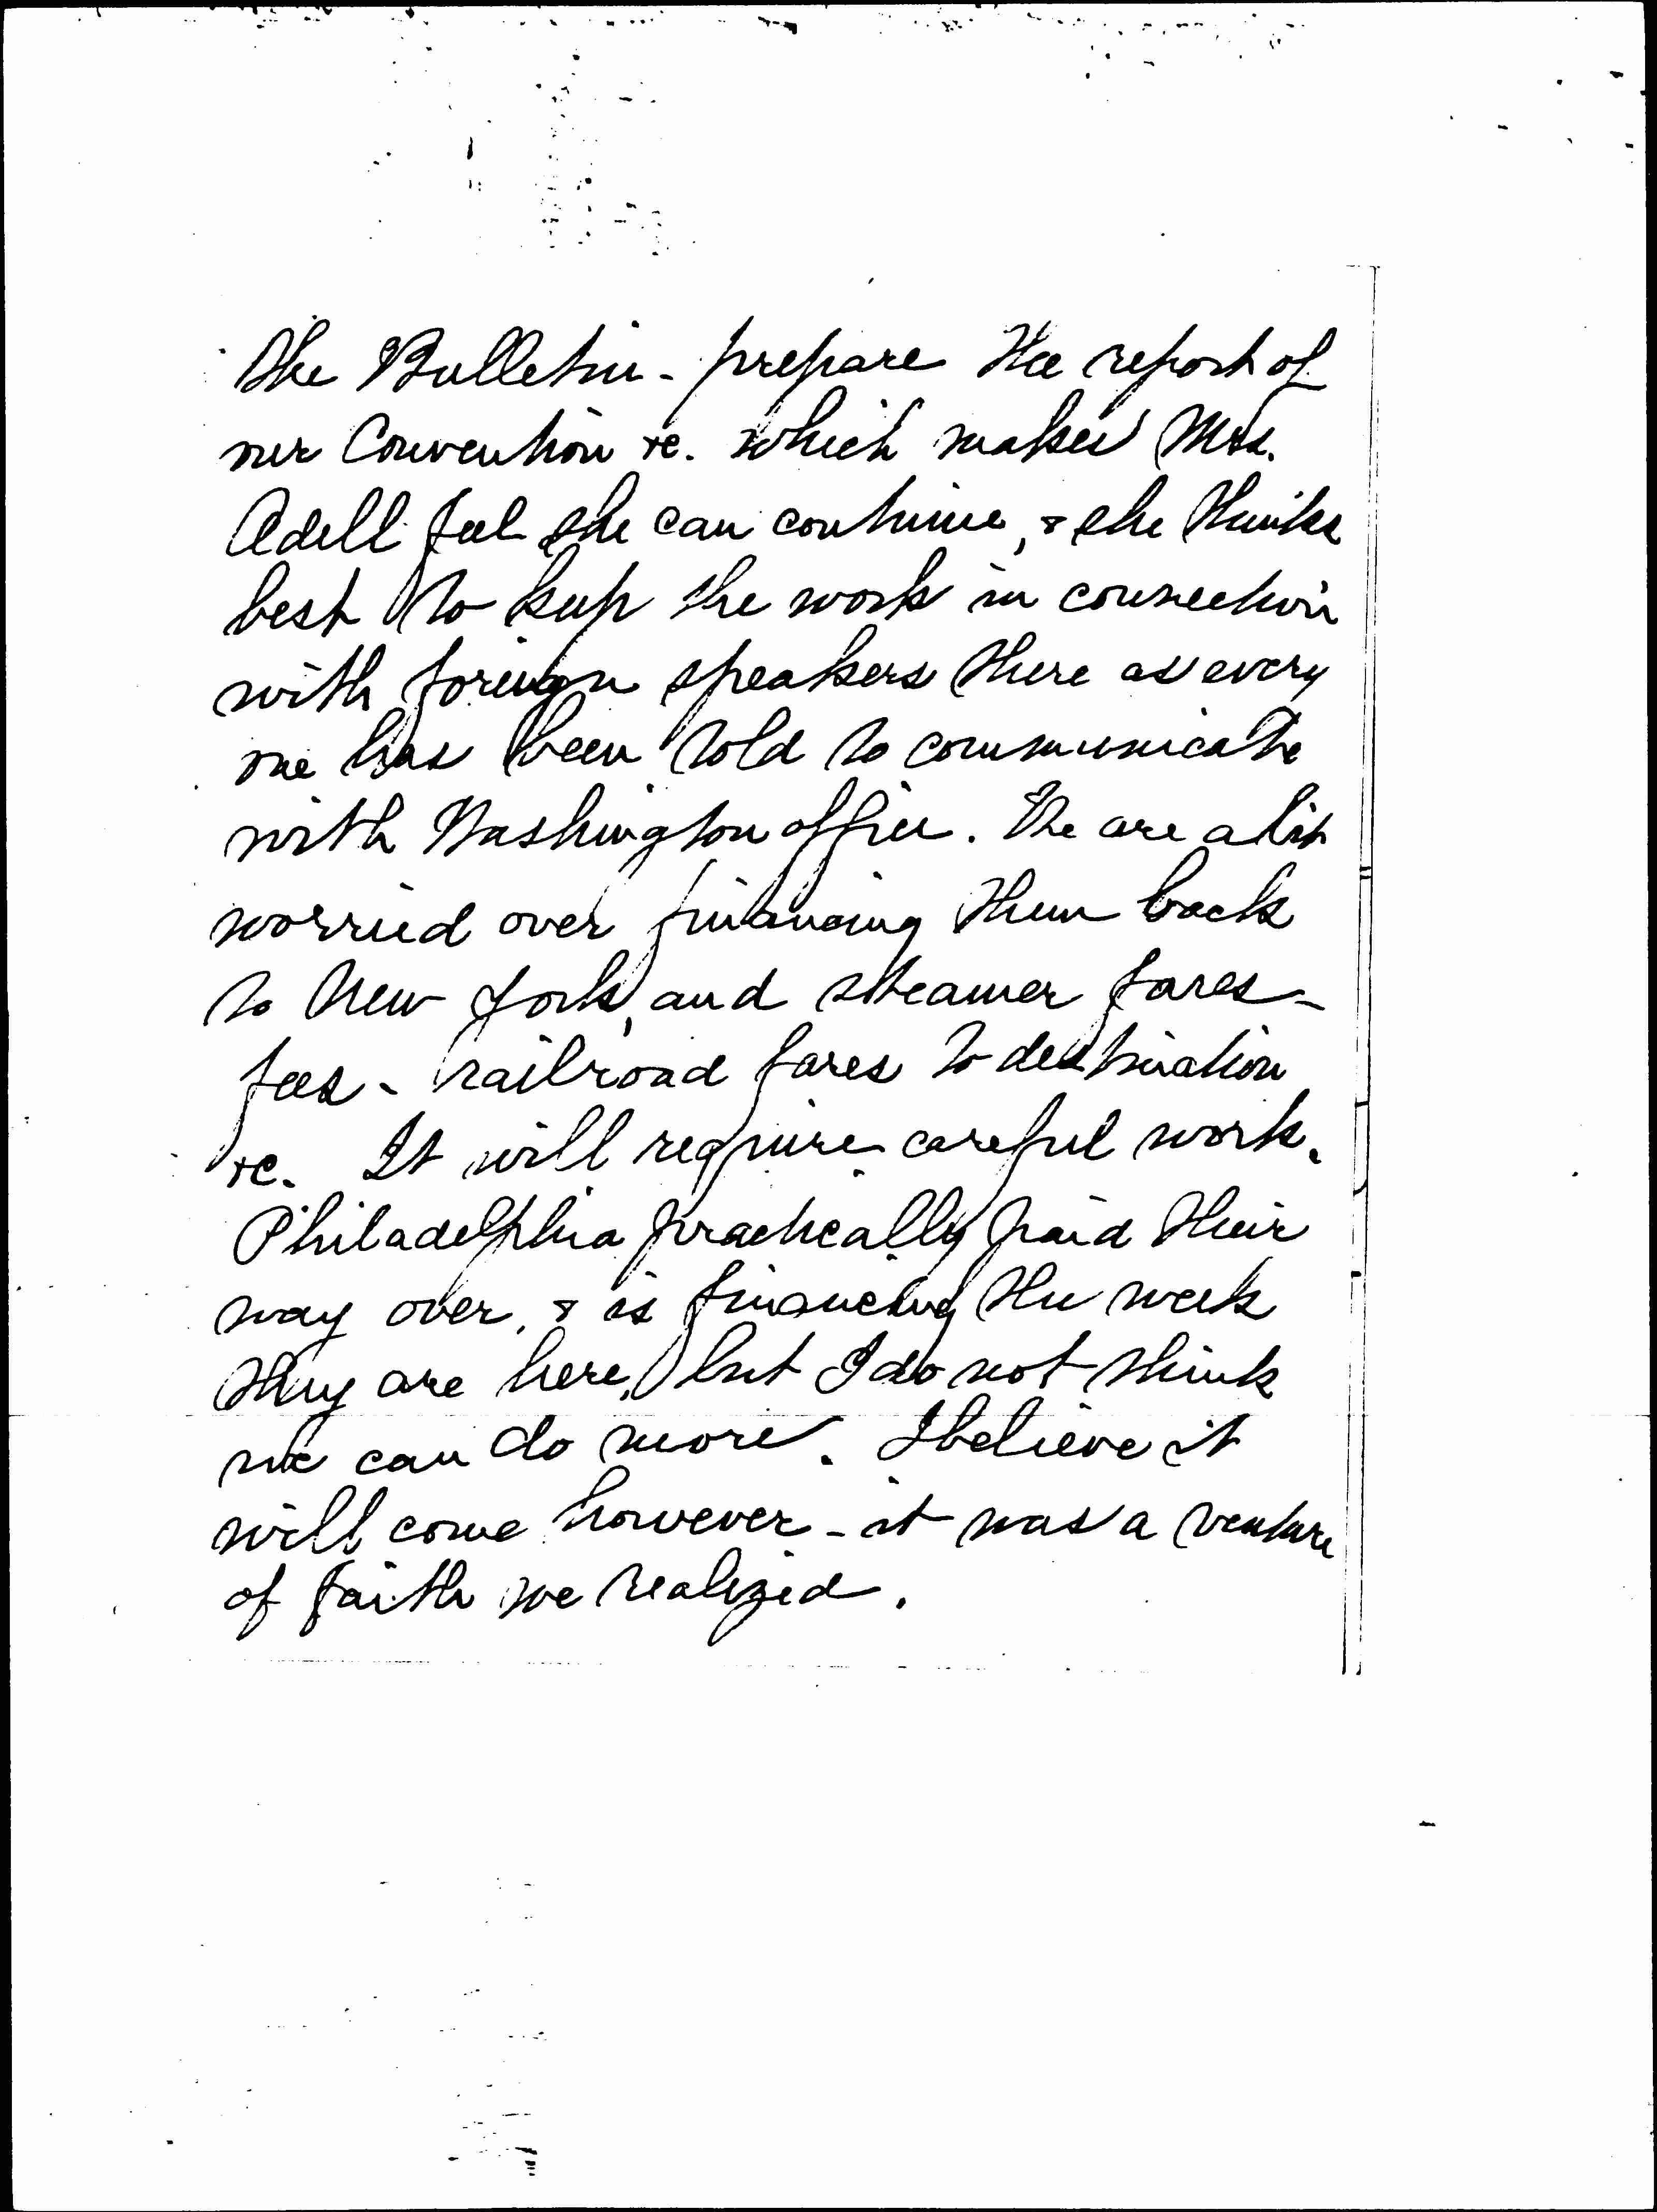 the Bulletin - prepare the report of
our Convention &c. which makes Mrs.
Adell feel she can continue, & she thinks
best to keep the work in connection
with foreign speakers there as every
one has been told to communicate
with Washington office. We are a bit
worried over financing them back
to New York, and steamer fares -
fees - railroad fares to destination
&c. It will require careful work.
Philadelphia practically paid their
way over, & is financing the week
they are here, but I do not think
we can do more. I believe it
will come however - it was a venture
of faith we realized.